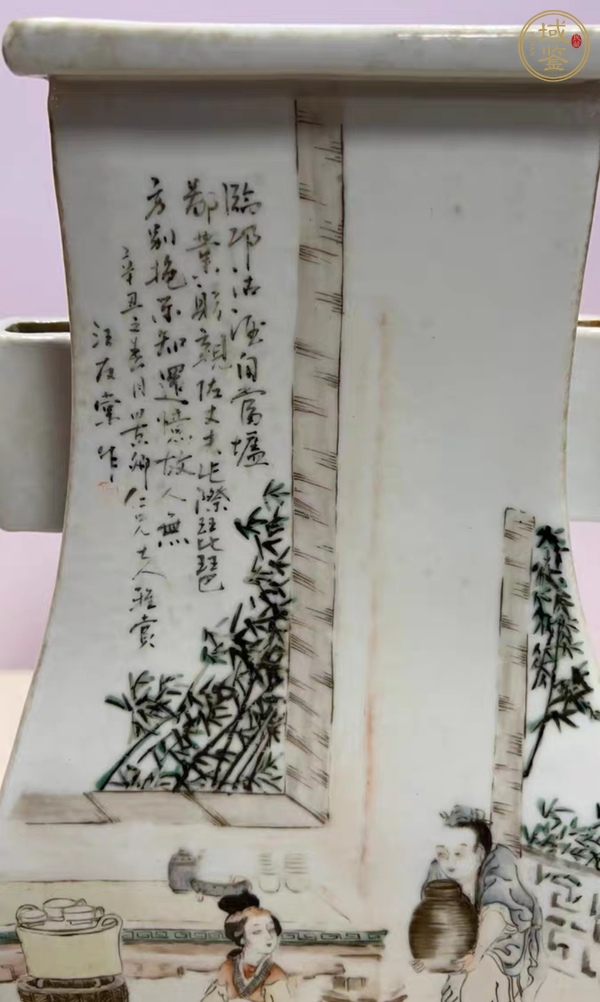 臨邛沽酒自當壚
鄙業躬親佐丈夫此際琵琶
方別抱不知還憶故人無
辛丑之春月景卿仁兄大人雅賞
汪友棠作
域鉴